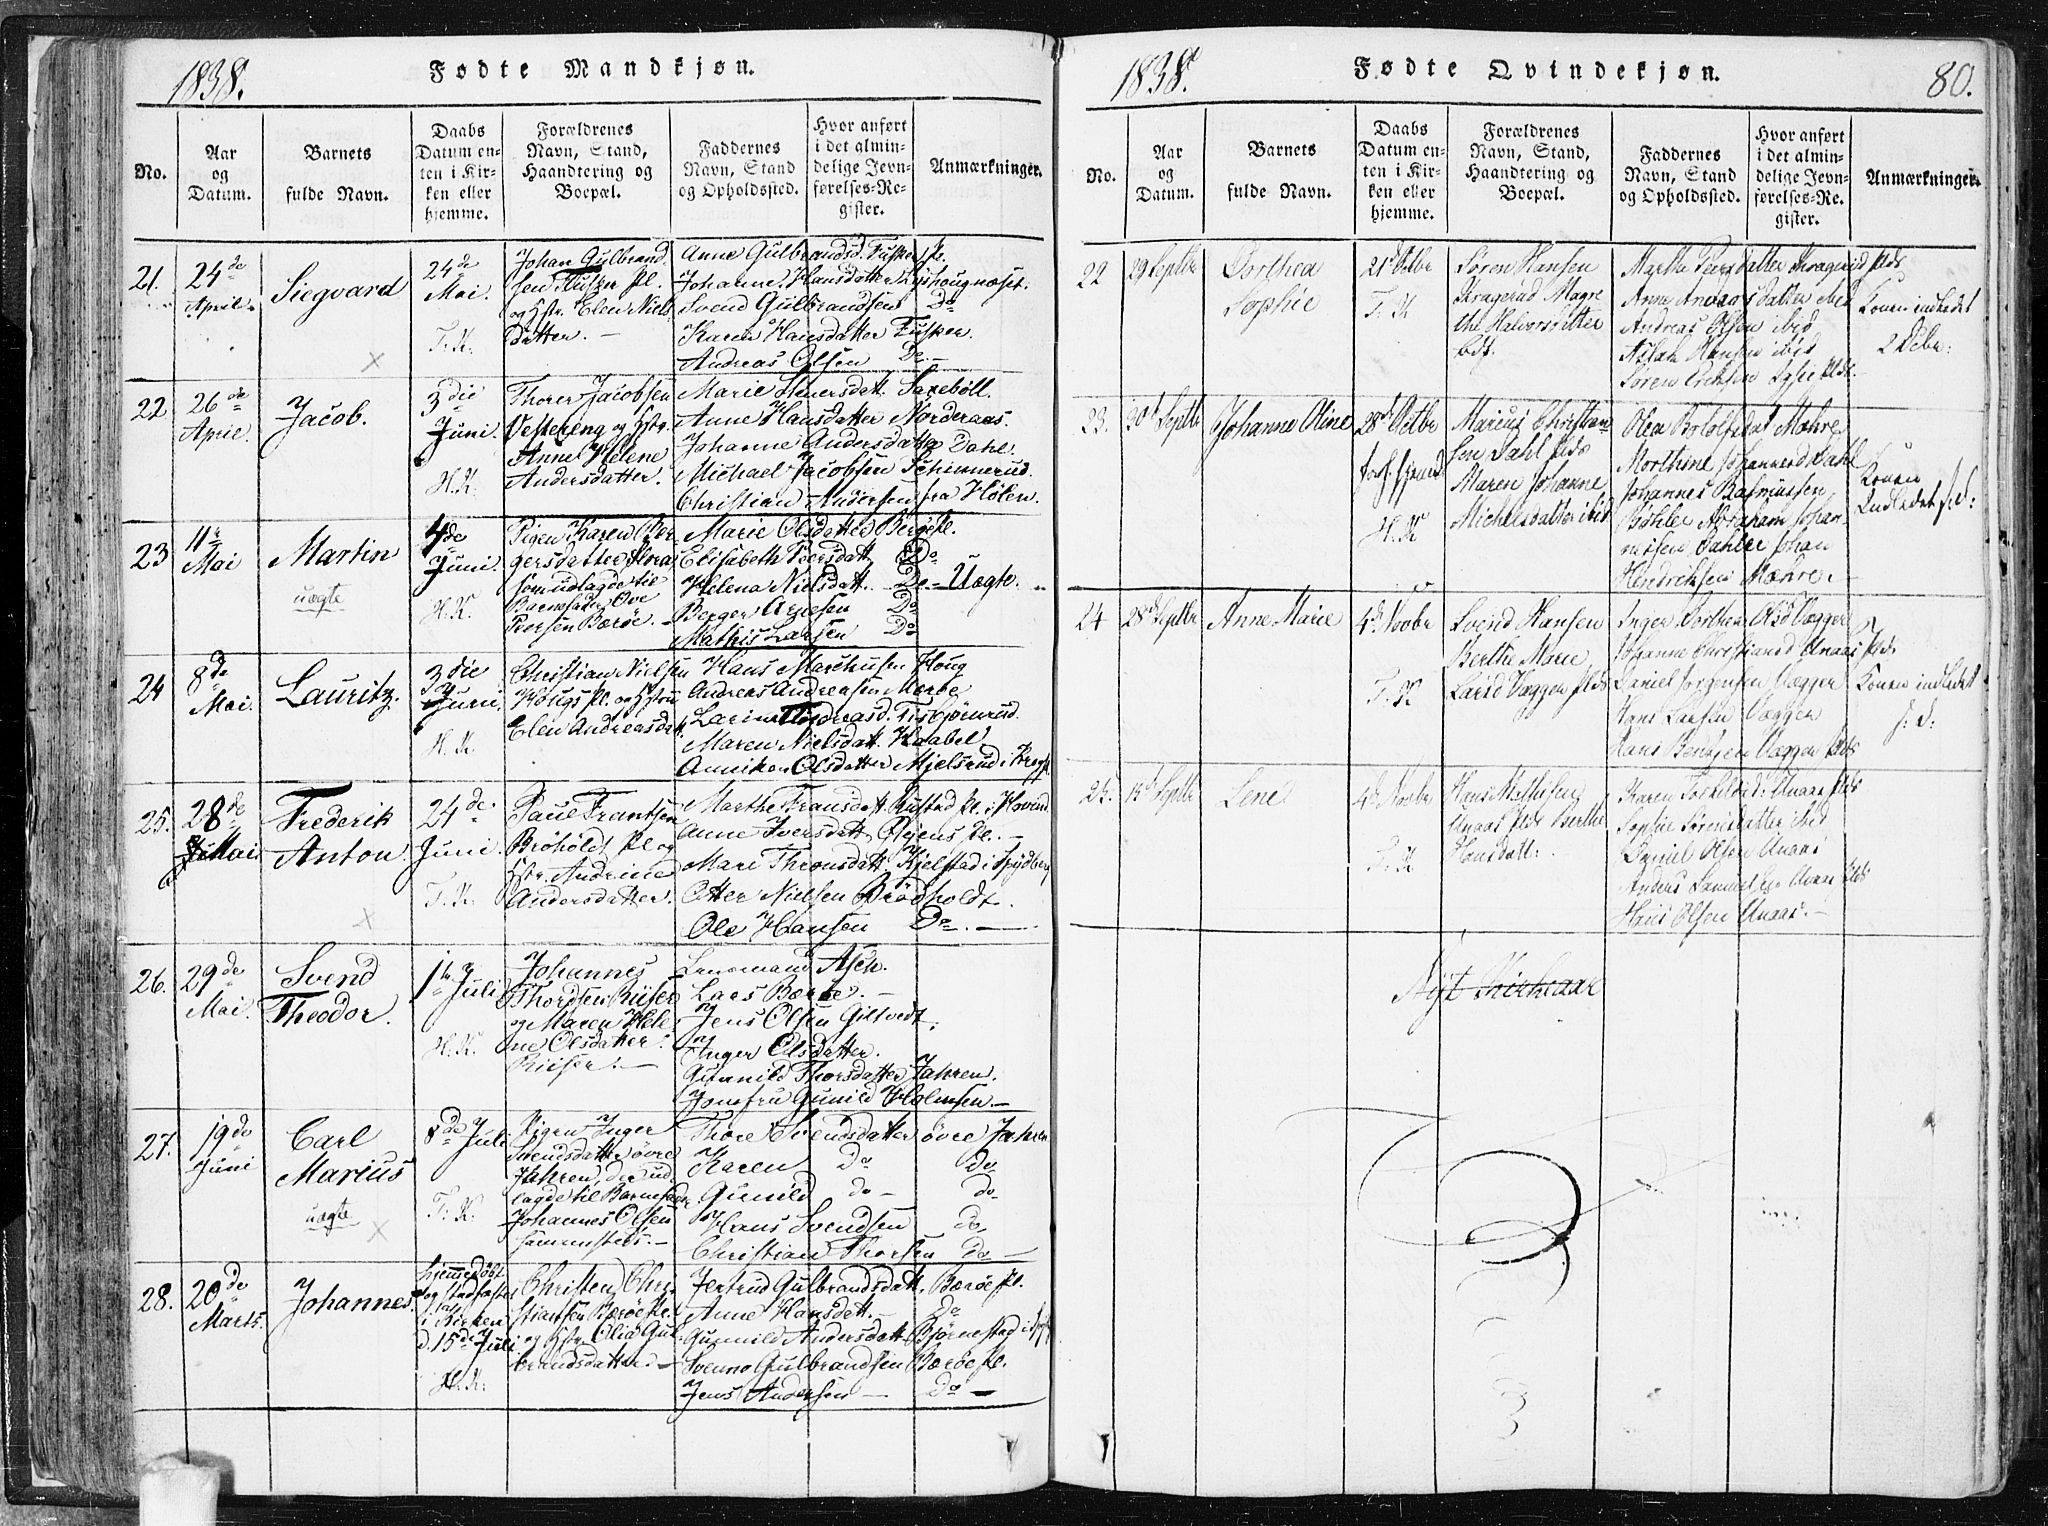 1838.
Fødte Mandkjøn.
No.
Aar
og
Datum.
Barnets
fulde Navn.
Daabs
Datum en-
ten i Kir-
ken eller
hjemme.
Forældrenes
Navn, Stand,
Haandtering og
Boepæl.
Faddernes
Navn, Stand
og Opholdssted.
Hvor anført
i det almin-
delige Jevn-
førelses-Re-
gister.
Anmærkninger.
21.
24de
April.
Siegvard
24de
Mai.
T. K.
Johan Gulbrand
sen Fusker pl.
og Hstr. Elen Niels
Datter. —
Anne Gulbrandsd. Fusker pl.
Johanne Hansdatter Lyshougnæset.
Svend Gulbrandsen Do
Karen Hansdatter Fusker.
Andreas Olsen Do. —
22
26de
April.
Jacob.
3die
Juni.
H. K.
Thorer Jacobsen
Vestereng og Hstr.
Anne Helene
Andersdatter.
Marie Iversdatt. Saxeböll.
Anne Hansdatter Norderaas.
Johanne Andersdatter Dahl.
Michael Jacobsen Schinnerud.
Christian Andersen fra Hølen.
23
11te
Mai
Martin
uægte
4de
Juni.
H. K.
Pigen Karen Ber
gersdatter
som udlagde til
Barnefader Ove
Peersen Bærøe. —
Marie Olsdatter Bærøe pl.
Elisabeth Peersdatt. Do
Helena Nielsdatt. Do — Uægte.
Berger Arnesen Do
Mathis Larsen Do
24
8de
Mai.
Lauritz.
3die
Juni.
H. K.
Christian Nielsen
Hougs pl. og Hstru
Elen Andreasdatt.
Hans Marthusen Houg
Andreas Andreasen Mørbe
Larine Andreasd. Tisbjørnrud.
Maren Nielsdatt. Haabel
Anniken Olsdatter Mjelsrud i Kragst.
25.
28de
Mai
Frederik
Anton.
24de
Juni.
T. K.
Paul Frantsen
Brøholdt pl og
Hstr. Andrine
Andersdatter.
Marthe Fransdatt. Rustad pl. i Hovind
Anne Iversdatt. Ryens pl. —
Mari Thronsdatt. Kjelstad i Spydberg
Otter Nielsen Brødholdt.
Ole Hansen Do. —
26.
29de
Mai.
Svend
Theodor.
1te Juli
H. K.
Johannes
Thordsen Riiser
og Maren Hele
ne Olsdatter
Riiser. —
Lensmand Asch.
Lars Bærøe. —
Jens Olsen Giltvedt.
Inger Olsdatter.
Gunnild Thorsdatter Jahren.
Jomfru Gunild Holmsen. —
27.
19de
Juni
Carl
Marius
uægte
8de Juli
T. K.
Pigen Inger
Svendsdatter øvre
Jahren, der ud
lagde til Barnefader
Johannes Olsen
sammesteds. —
Thore Svendsdatter øvre Jahren
Karen Do do
Gunild do — do
Hans Svendsen do
Christian Thorsen Do —
28.
20de
Marts.
Johannes.
hjemmedøbt
og stadfæstet
i Kirken
d. 15de Juli
H. K.
Christen Chri
stiansen Bærøe pl.
og Hstr. Olia Gul
brandsdatter. —
Jertrud Gulbrandsdatt. Bærøe pl.
Anne Hansdatt. — Do
Gunnild Andersdatt. Bjørnestad i
Svenno Gulbrandsen Bærøe pl.
Jens Andersen — Do —
1838.
Fødte Qvindekjøn.
80.
No.
Aar
og
Datum.
Barnets
fulde Navn.
Daabs
Datum en-
ten i Kir-
ken eller
hjemme.
Forældrenes
Navn, Stand,
Haandtering og
Boepæl.
Faddernes
Navn, Stand
og Opholdssted.
Hvor anført
i det almin-
delige Jevn-
førelses-Re-
gister.
Anmærkninger.
22
29 Septbr
Dorthea
Sophie
21d Octbr
T. K
Søren Hansen
Kragerud Magre
the Halvorsdatter
Marthe Peersdatter Kragerud plds
Anne Andersdatter ibid
Andreas Olsen ibid
Aslak Hansen ibid
Søren Eriksen
Konen indledet
2 Dcbr:
23.
30d Septbr
Johanne Oline
28d Octbr
H. K
Marius Christian
sen Dahl plds
Maren Johanne
Michelsdatter ibid
Olea Bololfsdat Mæhre
Morthine Johannesd Dahl
Johannes Rasmussen
Bøhler Abraham Johan
nessen Dahler Johan
Hendriksen Mæhre. —
Konen
Indledet s. d:
24
28d Septbr
Anne Marie
4d Novbr
T. K
Svend Hansen
Berthe Marie
Larsd Væggen plds
Inger Dorthea Olsd Vægger
Johanne Christiansd Unaas plds
Daniel Jørgensen Vægger
Hans Larsen Vægger
Hans Bentsen Vægger plds
Konen indledet
s: d:
25.
15d Septbr
Lene
4d Novbr
T. K
Hans Mathisen
Unaas plds Berthe
Hansdatt:
Karen Torkildsd: Unaas plds
Sophie Sørensdatter ibid
Daniel Olsen Unaas
Anders Samuelsen Unaas plds
Hans Olsen Unaas. —
Nyt Kirkeaar